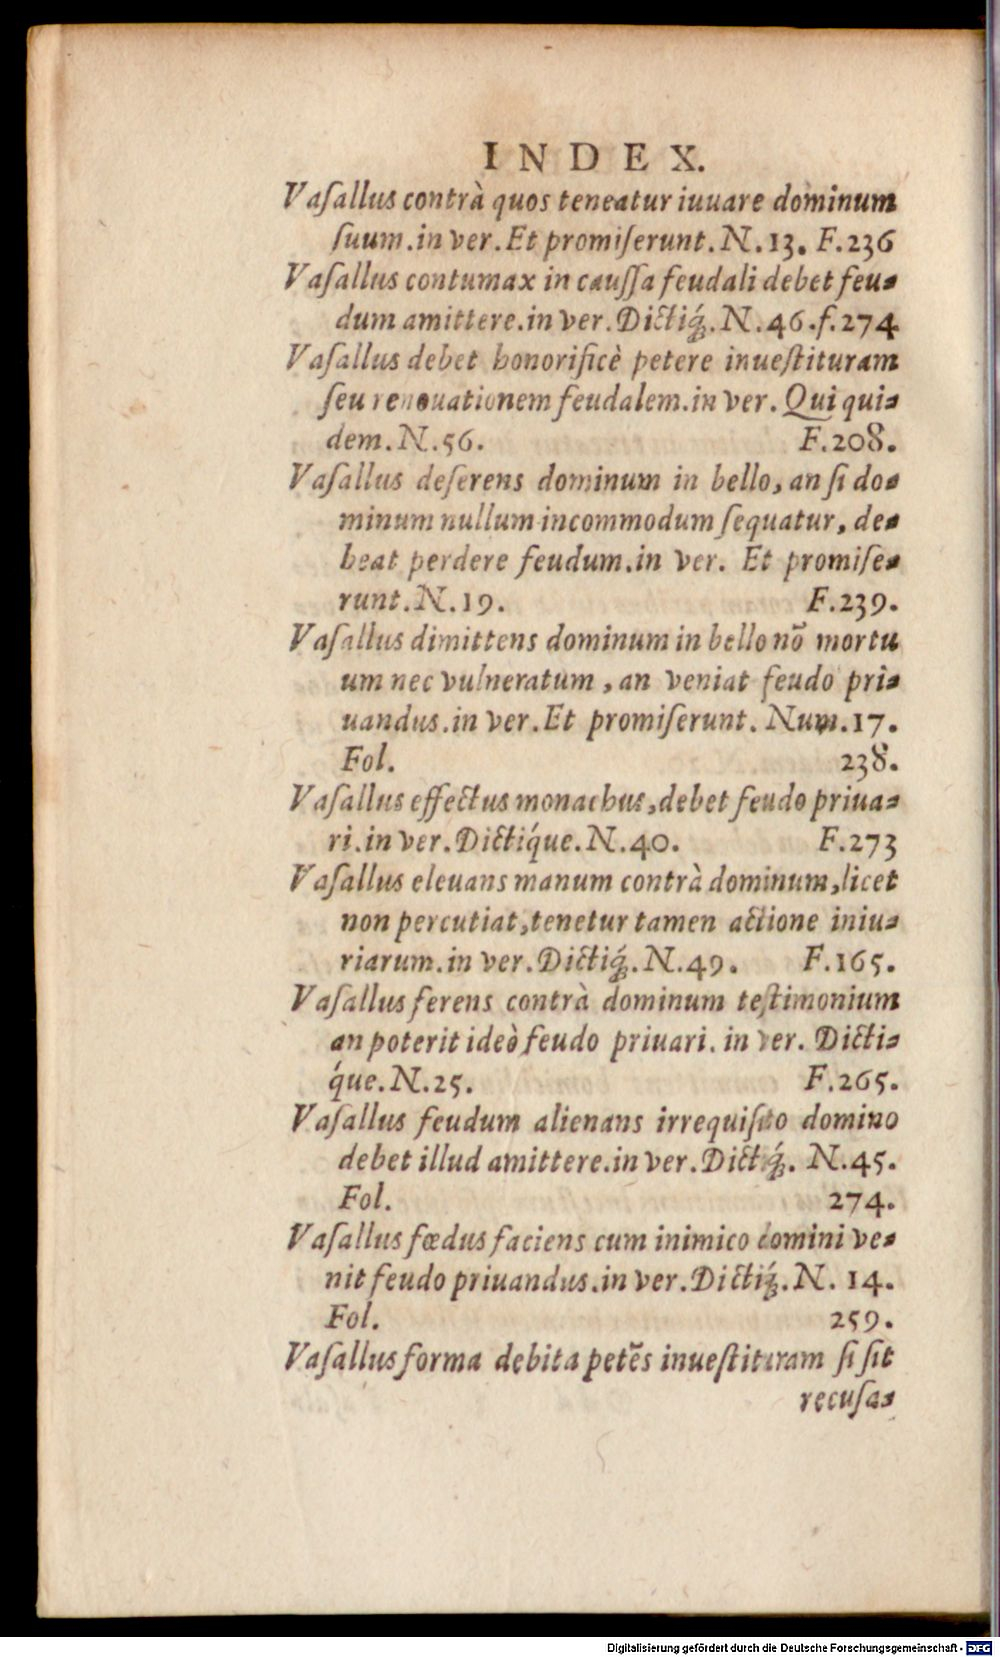 INDEX.
Vaſallus contrà quos teneatur iuuare dominum
ſuum.in ver.Et promiſerunt.N.13. F.236
Vaſallus contumax in cauſſa feudali debet feu-
dum amittere.in ver.Dictiq́;.N.46.f.274
Vaſallus debet honorificè petere inueſtituram
ſeu renouationem feudalem.in ver. Qui qui-
dem.N.56. F.208.
Vaſallus deſerens dominum in bello, an ſi do-
minum nullum incommodum ſequatur, de-
beat perdere feudum.in ver. Et promiſe-
runt.N.19. F.239.
Vaſallus dimittens dominum in bello nō mortu
um nec vulneratum, an veniat feudo pri-
uandus.in ver.Et promiſerunt. Num.17.
Fol. 238.
Vaſallus effectus monachus,debet feudo priua-
ri.in ver.Dictiq́ue.N.40. F.273
Vaſallus eleuans manum contrà dominum,licet
non percutiat,tenetur tamen actione iniu-
riarum.in ver.Dictiq́;.N.49. F.165.
Vaſallus ferens contrà dominum teſtimonium
an poterit ideò feudo priuari. in ver. Dicti-
q́ue.N.25. F.265.
Vaſallus feudum alienans irrequiſito domino
debet illud amittere.in ver.Dictiq́;. N.45.
Fol. 274.
Vaſallus fœdus faciens cum inimico domini ve-
nit feudo priuandus.in ver.Dictiq́;.N. 14.
Fol. 259.
Vaſallus forma debita petēs inueſtituram ſi ſit
recuſa-
Digitalisierung gefördert durch die Deutsche Forschungsgemeinschaft - DFG